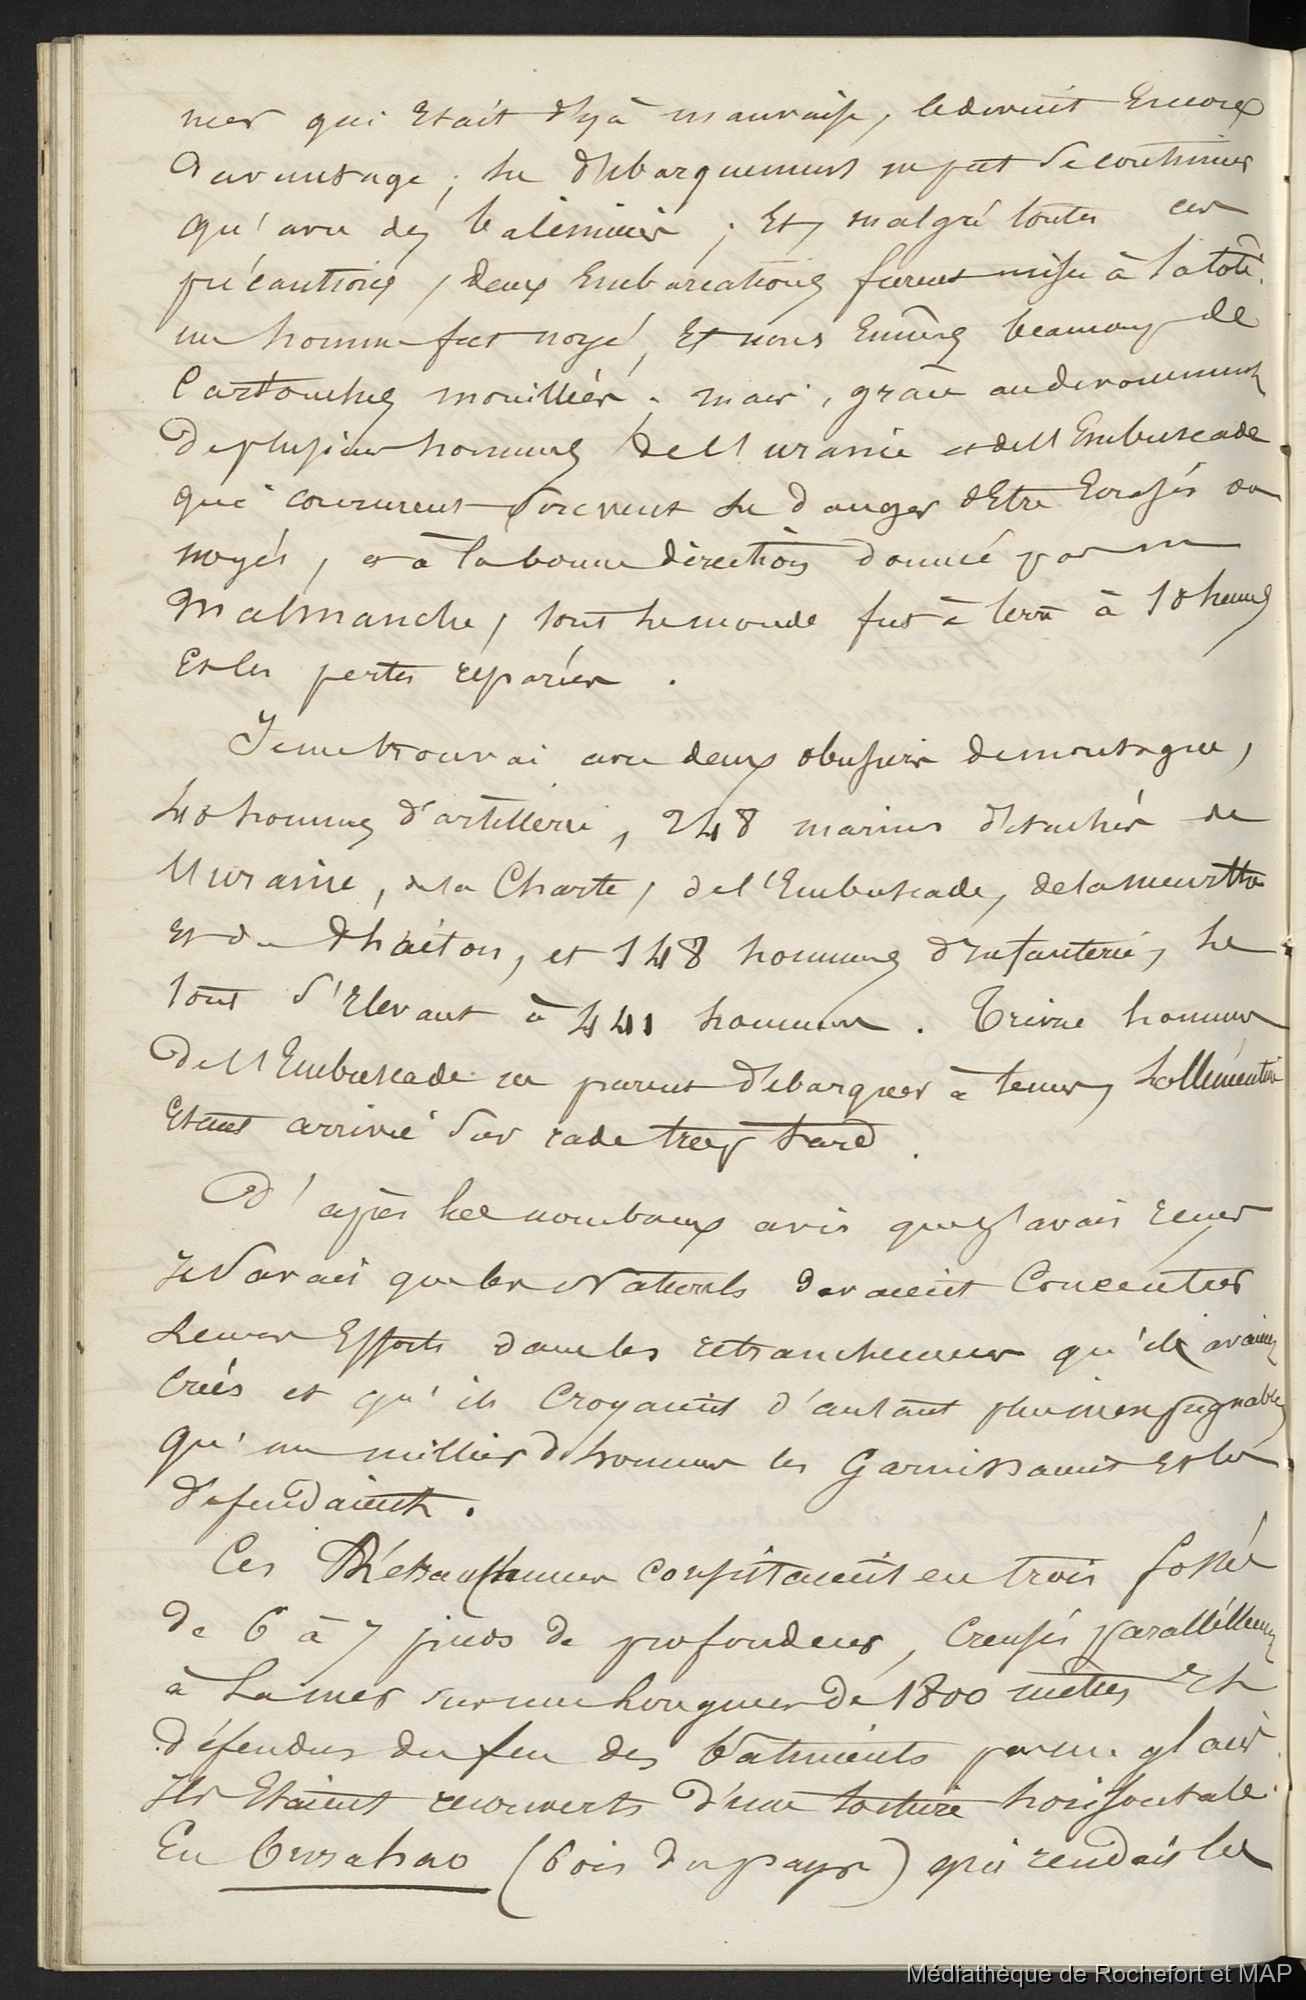 mer qui Etait déjà mauvaise, le devint Encore
Davantage; le débarquement ne put se continuer
qu'avec des baleinières; Et, malgré toutes ces
précautions, deux Embarcations furent mises à la côte.
un homme fut noyé, Et nous Eûmes beaucoup de
Cartouches mouillées; mais, grâce au dévouement
De plusieurs hommes de l'Uranie et de l'Embuscade
qui coururent souvent le danger d'Etre Ecrasés ou
noyés, et à la bonne direction donnée par m
Malmanche, tout le monde fut à terre à 10 heures
Et les pertes réparées.
Je me trouvai avec deux obusiers de montagne,
40 hommes d'artillerie, 248 marins détachés de
l'Uranie, de la Charte, de l'Embuscade, de la meurthe
et du Phaéton, et 148 hommes d'Infanterie, le
tout s'Elevant à 441 hommes. Treize hommes
De l'Embuscade ne purent débarquer à temps,
Etant arrivé sur rade trop tard.
D'après les nombreux avis que j'avais reçus
Je savais que les Naturels devaient Concentrer
Leurs Efforts dans les retranchements qu'ils avaient
Créés et qu'ils Croyaient d'autant plus inexpugnables
qu'un millier d'hommes les Garnissaient et les
défendaient.
Ces Rétranchements consistaient en trois fossés
de 6 à 7 pieds de profondeur, Creusés parallèllement
à La mer sur une longueur de 1800 mètres Et
défendus du feu des bâtiments par un glacis.
Ils Etaient recouverts d'une toiture horisontale
En burahao (bois du pays) qui rendait les
Médiathèque de Rochefort et MAP